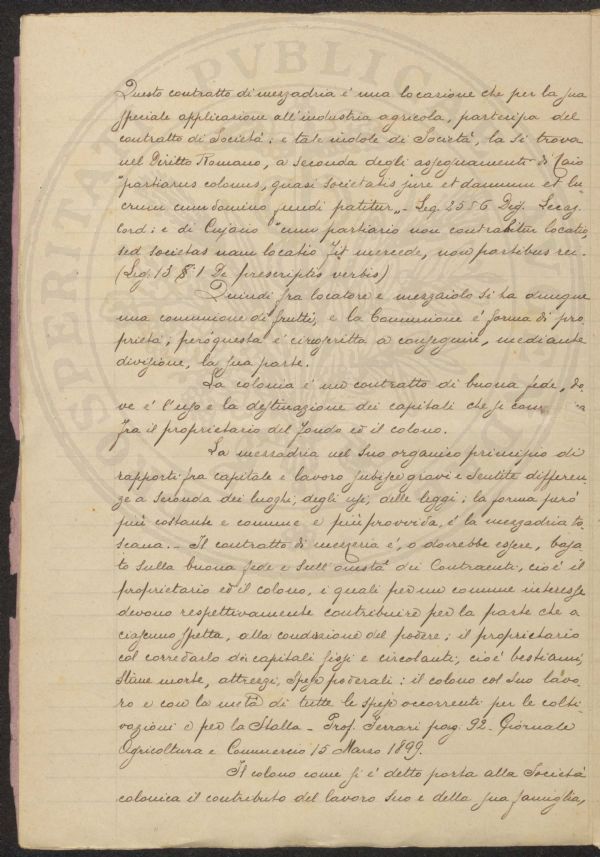 Questo contratto di mezzadria é una locazione che per la sua
speciale applicazione all'industria agricola, partecipa del
contratto di Società: e tale indole di Società, la si trova
nel Diritto Romano, a seconda degli assegnamenti di Caio
"partiarus colonus, quasi societatis jure et damnum et lu-
crum cum domino fundi patitur" - Leg. 25 § 6 Dig.
cord: e di Cujacio "cum partiario non contrahitur locatio,
sed societas nam locatio fit mercede, non partibus rei.
(Leg. 13 § 1 De prescriptis verbis)
Quindi fra locatore e mezzaiolo si ha dunque
una comunione di frutti, e la Comunione é forma di pro-
prietà, peró questa é circoscritta a conseguire, mediante
divisione, la sua parte.
La colonia é un contratto di buona fede, do-
ve é l'uso e la destinazione dei capitali che si
fra il proprietario del fondo ed il colono.
La mezzadria nel suo organico principio di
rapporti fra capitale e lavoro subisce gravi e sentite differen-
ze a seconda dei luoghi, degli usi, delle leggi; la forma peró
piú costante e comune e piú provvida, é la mezzadria to-
scana. - Il contratto di mezzeria é, o dovrebbe essere, basa-
to sulla buona fede e sull'onestá dei Contraenti, cioé il
proprietario ed il colono, i quali per un comune interesse
devono respettivamente contribuire per la parte che a
ciascuno spetta, alla conduzione del podere; il proprietario
col corredarlo di capitali fissi e circolanti, cioé bestiami,
stime morte, attrezzi, spese poderali: il colono col suo lavo-
ro e con la metá di tutte le spese occorrenti per le colti-
vazioni e per la Stalla - Prof. Ferrari pag. 92. Giornale
Agricoltura e Commercio 15 Marzo 1899.
Il colono come si é detto porta alla Società
colonica il contributo del lavoro suo e della sua famiglia,